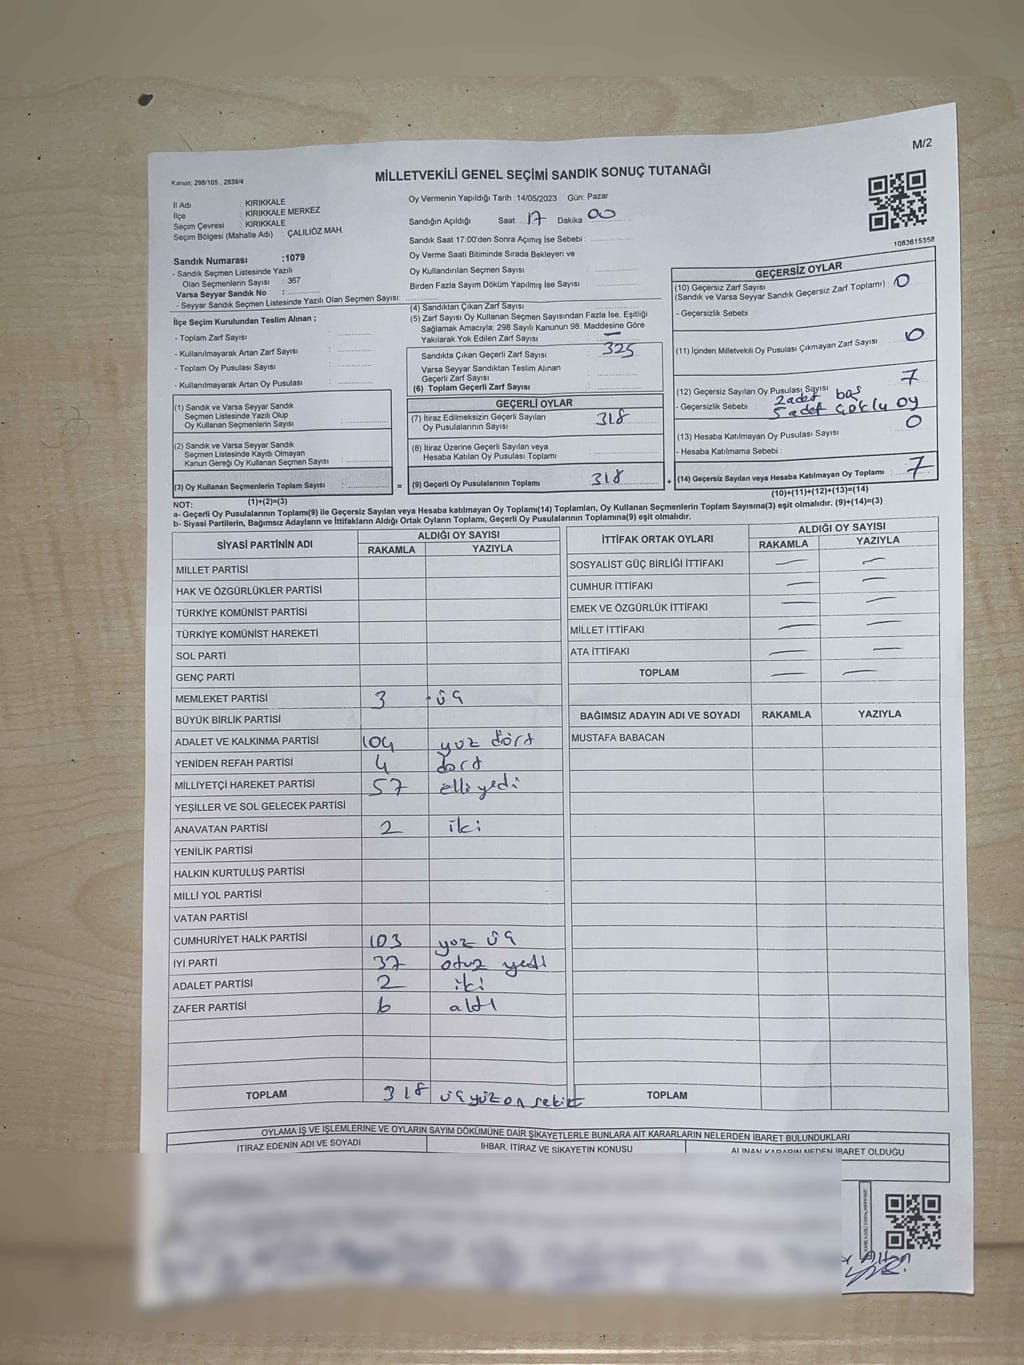 M/2
MİLLETVEKİLİ GENEL SEÇİMİ SANDIK SONUÇ TUTANAĞI
Kanun; 298/105 , 2839/4
İl Adı : KIRIKKALE
İlçe : KIRIKKALE MERKEZ
Seçim Çevresi : KIRIKKALE
Seçim Bölgesi (Mahalle Adı) : ÇALILIÖZ MAH.
Sandık Numarası :1079
- Sandık Seçmen Listesinde Yazılı
Olan Seçmenlerin Sayısı : 367
Varsa Seyyar Sandık No :
- Seyyar Sandık Seçmen Listesinde Yazılı Olan Seçmen Sayısı:
Oy Vermenin Yapıldığı Tarih :14/05/2023 Gün: Pazar
Sandığın Açıldığı Saat : 17 Dakika : 00
Sandık Saat 17:00'den Sonra Açımış İse Sebebi :
Oy Verme Saati Bitiminde Sırada Bekleyen ve
Oy Kullandırılan Seçmen Sayısı :
Birden Fazla Sayım Döküm Yapılmış İse Sayısı :
1083615358
İlçe Seçim Kurulundan Teslim Alınan ;
- Toplam Zarf Sayısı :
- Kullanılmayarak Artan Zarf Sayısı :
- Toplam Oy Pusulası Sayısı :
- Kullanılmayarak Artan Oy Pusulası :
(1) Sandık ve Varsa Seyyar Sandık
Seçmen Listesinde Yazılı Olup
Oy Kullanan Seçmenlerin Sayısı :
(2) Sandık ve Varsa Seyyar Sandık
Seçmen Listesinde Kayıtlı Olmayan
Kanun Gereği Oy Kullanan Seçmen Sayısı :
(3) Oy Kullanan Seçmenlerin Toplam Sayısı :
(1)+(2)=(3)
(4) Sandıktan Çıkan Zarf Sayısı
(5) Zarf Sayısı Oy Kullanan Seçmen Sayısından Fazla İse, Eşitliği
Sağlamak Amacıyla; 298 Sayılı Kanunun 98. Maddesine Göre
Yakılarak Yok Edilen Zarf Sayısı : —
Sandıkta Çıkan Geçerli Zarf Sayısı : 325
Varsa Seyyar Sandıktan Teslim Alınan
Geçerli Zarf Sayısı :
(6) Toplam Geçerli Zarf Sayısı :
GEÇERLİ OYLAR
(7) İtiraz Edilmeksizin Geçerli Sayılan
Oy Pusulalarının Sayısı : 318
(8) İtiraz Üzerine Geçerli Sayılan veya
Hesaba Katılan Oy Pusulası Toplamı :
= (9) Geçerli Oy Pusulalarının Toplamı : 318 +
GEÇERSİZ OYLAR
(10) Geçersiz Zarf Sayısı : 0
(Sandık ve Varsa Seyyar Sandık Geçersiz Zarf Toplamı)
- Geçersizlik Sebebi
(11) İçinden Milletvekili Oy Pusulası Çıkmayan Zarf Sayısı : 0
(12) Geçersiz Sayılan Oy Pusulası Sayısı : 7
- Geçersizlik Sebebi : 2 adet boş
5 adet çoklu oy
(13) Hesaba Katılmayan Oy Pusulası Sayısı : 0
- Hesaba Katılmama Sebebi :
(14) Geçersiz Sayılan veya Hesaba Katılmayan Oy Toplamı : 7
(10)+(11)+(12)+(13)=(14)
NOT:
a- Geçerli Oy Pusulalarının Toplamı(9) ile Geçersiz Sayılan veya Hesaba katılmayan Oy Toplam(14) Toplamları, Oy Kullanan Seçmenlerin Toplam Sayısına(3) eşit olmalıdır. (9)+(14)=(3)
b- Siyasi Partilerin, Bağımsız Adayların ve İttifakların Aldığı Ortak Oyların Toplamı, Geçerli Oy Pusulalarının Toplamına(9) eşit olmalıdır.
SİYASİ PARTİNİN ADI ALDIĞI OY SAYISI
RAKAMLA YAZIYLA
MİLLET PARTİSİ
HAK VE ÖZGÜRLÜKLER PARTİSİ
TÜRKİYE KOMÜNİST PARTİSİ
TÜRKİYE KOMÜNİST HAREKETİ
SOL PARTİ
GENÇ PARTİ
MEMLEKET PARTİSİ 3 üç
BÜYÜK BİRLİK PARTİSİ
ADALET VE KALKINMA PARTİSİ 104 yüz dört
YENİDEN REFAH PARTİSİ 4 dört
MİLLİYETÇİ HAREKET PARTİSİ 57 elli yedi
YEŞİLLER VE SOL GELECEK PARTİSİ
ANAVATAN PARTİSİ 2 iki
YENİLİK PARTİSİ
HALKIN KURTULUŞ PARTİSİ
MİLLİ YOL PARTİSİ
VATAN PARTİSİ
CUMHURİYET HALK PARTİSİ 103 yüz üç
İYİ PARTİ 37 otuz yedi
ADALET PARTİSİ 2 iki
ZAFER PARTİSİ 6 altı
TOPLAM 318 üçyüz on sekiz
İTTİFAK ORTAK OYLARI ALDIĞI OY SAYISI
RAKAMLA YAZIYLA
SOSYALİST GÜÇ BİRLİĞİ İTTİFAKI — —
CUMHUR İTTİFAKI — —
EMEK VE ÖZGÜRLÜK İTTİFAKI — —
MİLLET İTTİFAKI — —
ATA İTTİFAKI — —
TOPLAM — —
BAĞIMSIZ ADAYIN ADI VE SOYADI RAKAMLA YAZIYLA
MUSTAFA BABACAN
TOPLAM
OYLAMA İŞ VE İŞLEMLERİNE VE OYLARIN SAYIM DÖKÜMÜNE DAİR ŞİKAYETLERLE BUNLARA AİT KARARLARIN NELERDEN İBARET BULUNDUKLARI
İTİRAZ EDENİN ADI VE SOYADI İHBAR, İTİRAZ VE ŞİKAYETİN KONUSU ALINAN KARARIN NEDEN İBARET OLDUĞU